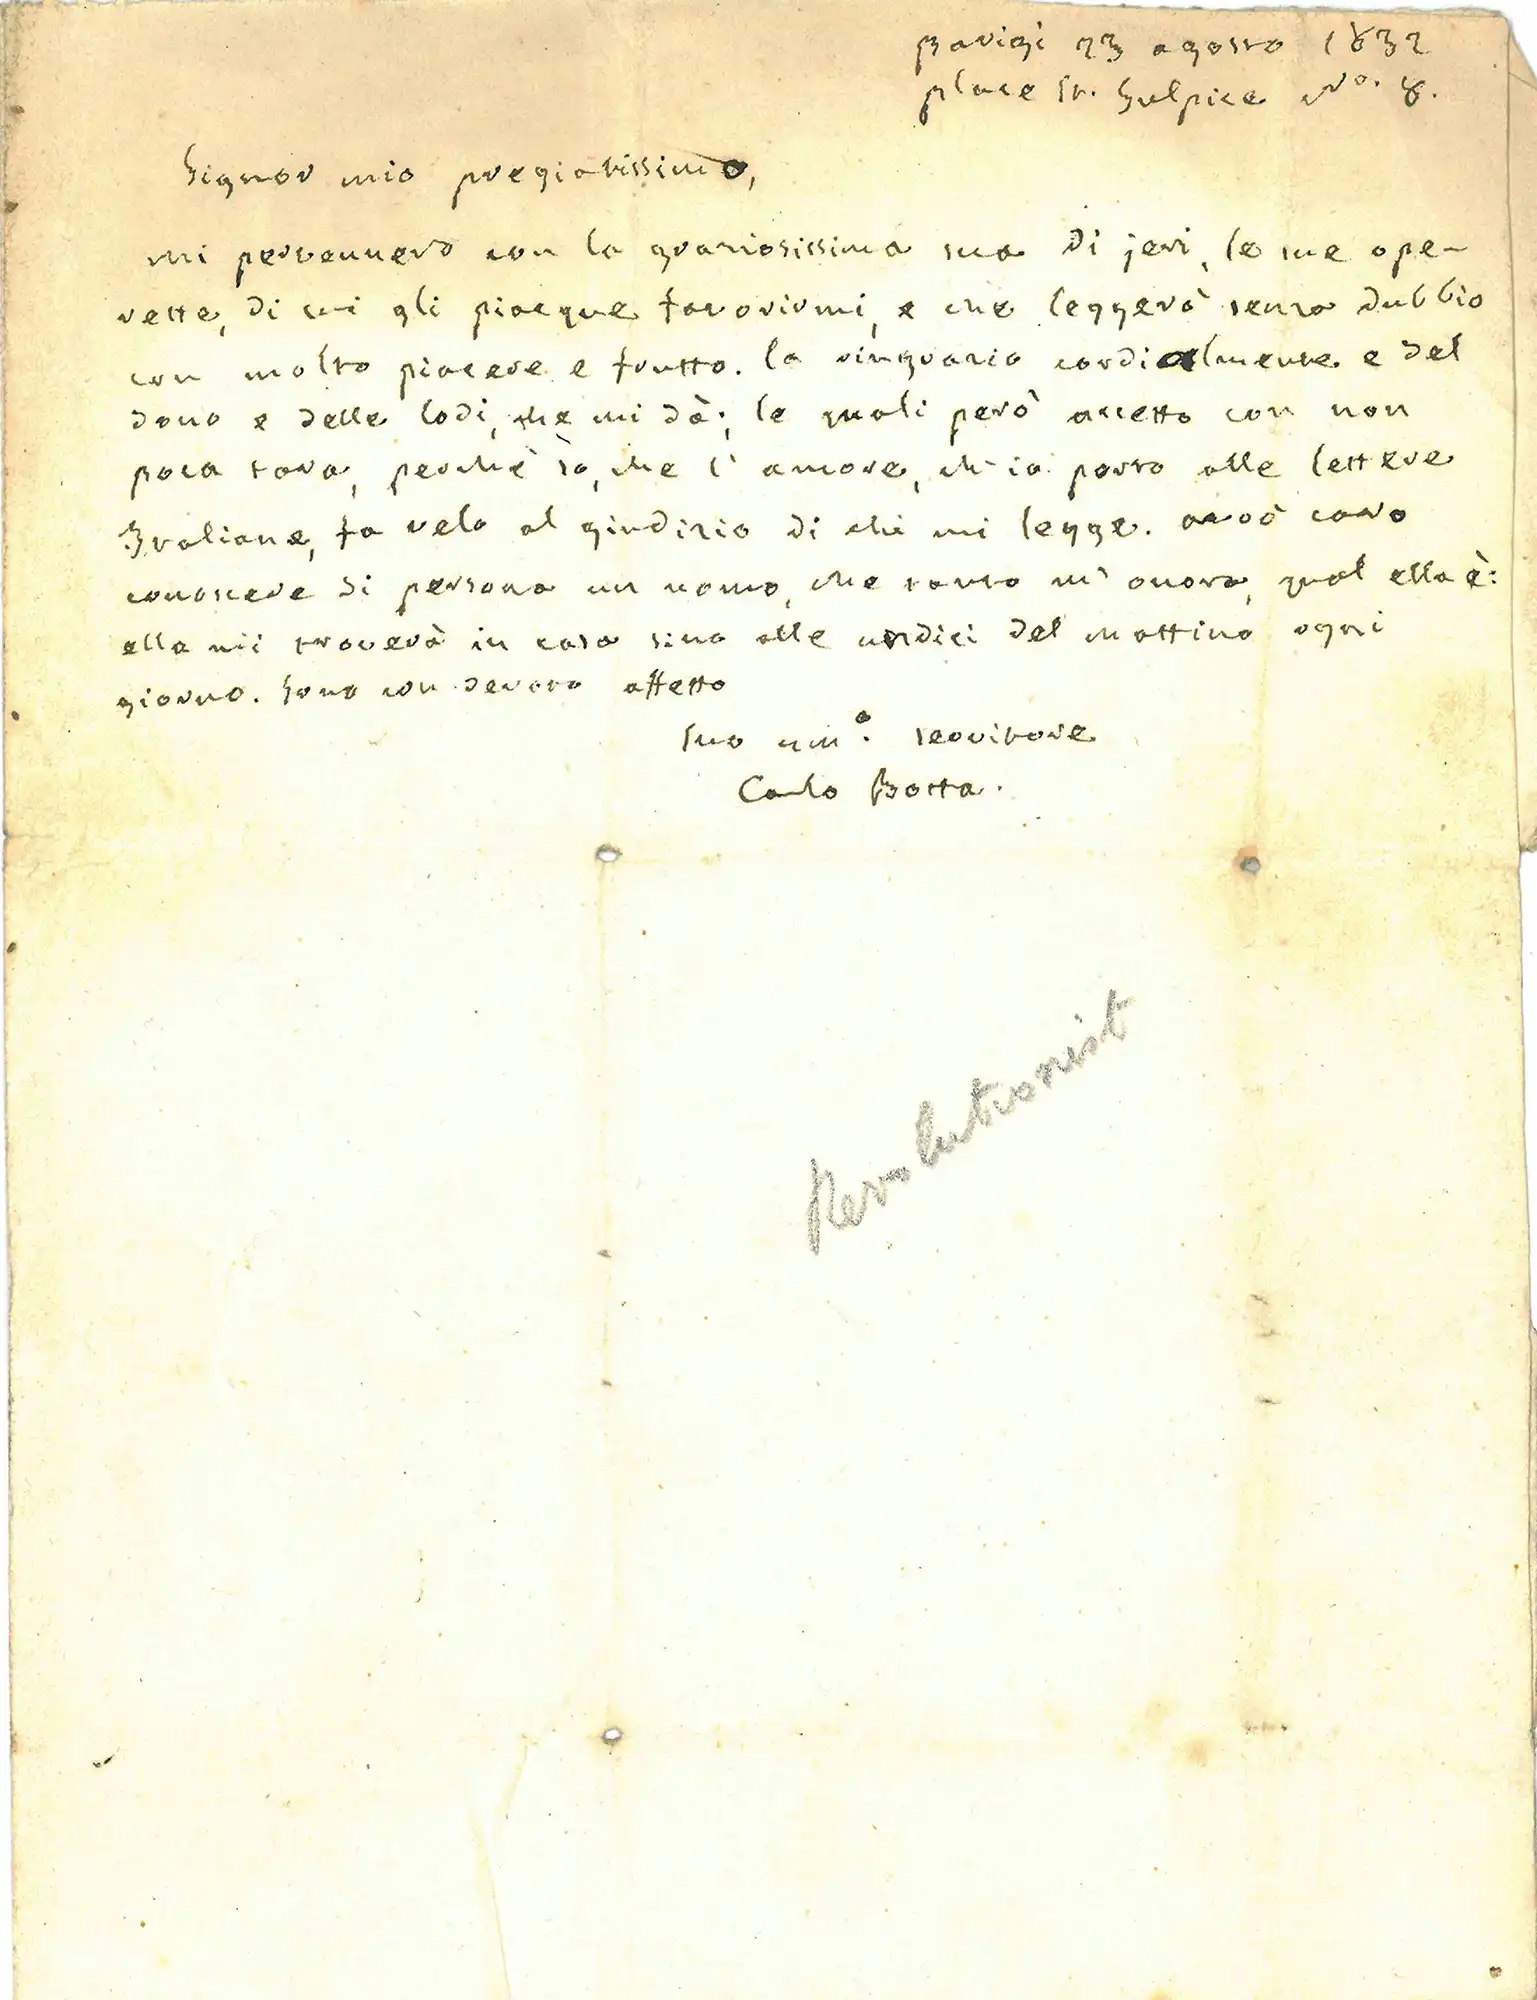 Parigi 23 agosto 1832
place St. Sulpice No. 8.
Signor mio pregiatissimo,
mi pervennero con la graziosissima sua di jeri, le sue ope-
rette, di cui gli piacque favorirmi, e che leggerò senza dubbio
con molto piacere e frutto. La ringrazio cordialmente e del
dono e delle lodi, che mi dà; le quali però accetto con non
poca tara, perchè so, che l'amore, ch'io porto alle lettere
Italiane, fa velo al giudizio di chi mi legge. avrò caro
conoscere di persona un uomo, che tanto m'onora, qual ella è:
ella mi troverà in casa sino alle undici del mattino ogni
giorno. Sono con devoto affetto
Suo um.o servitore
Carlo Botta.
Revolutionist